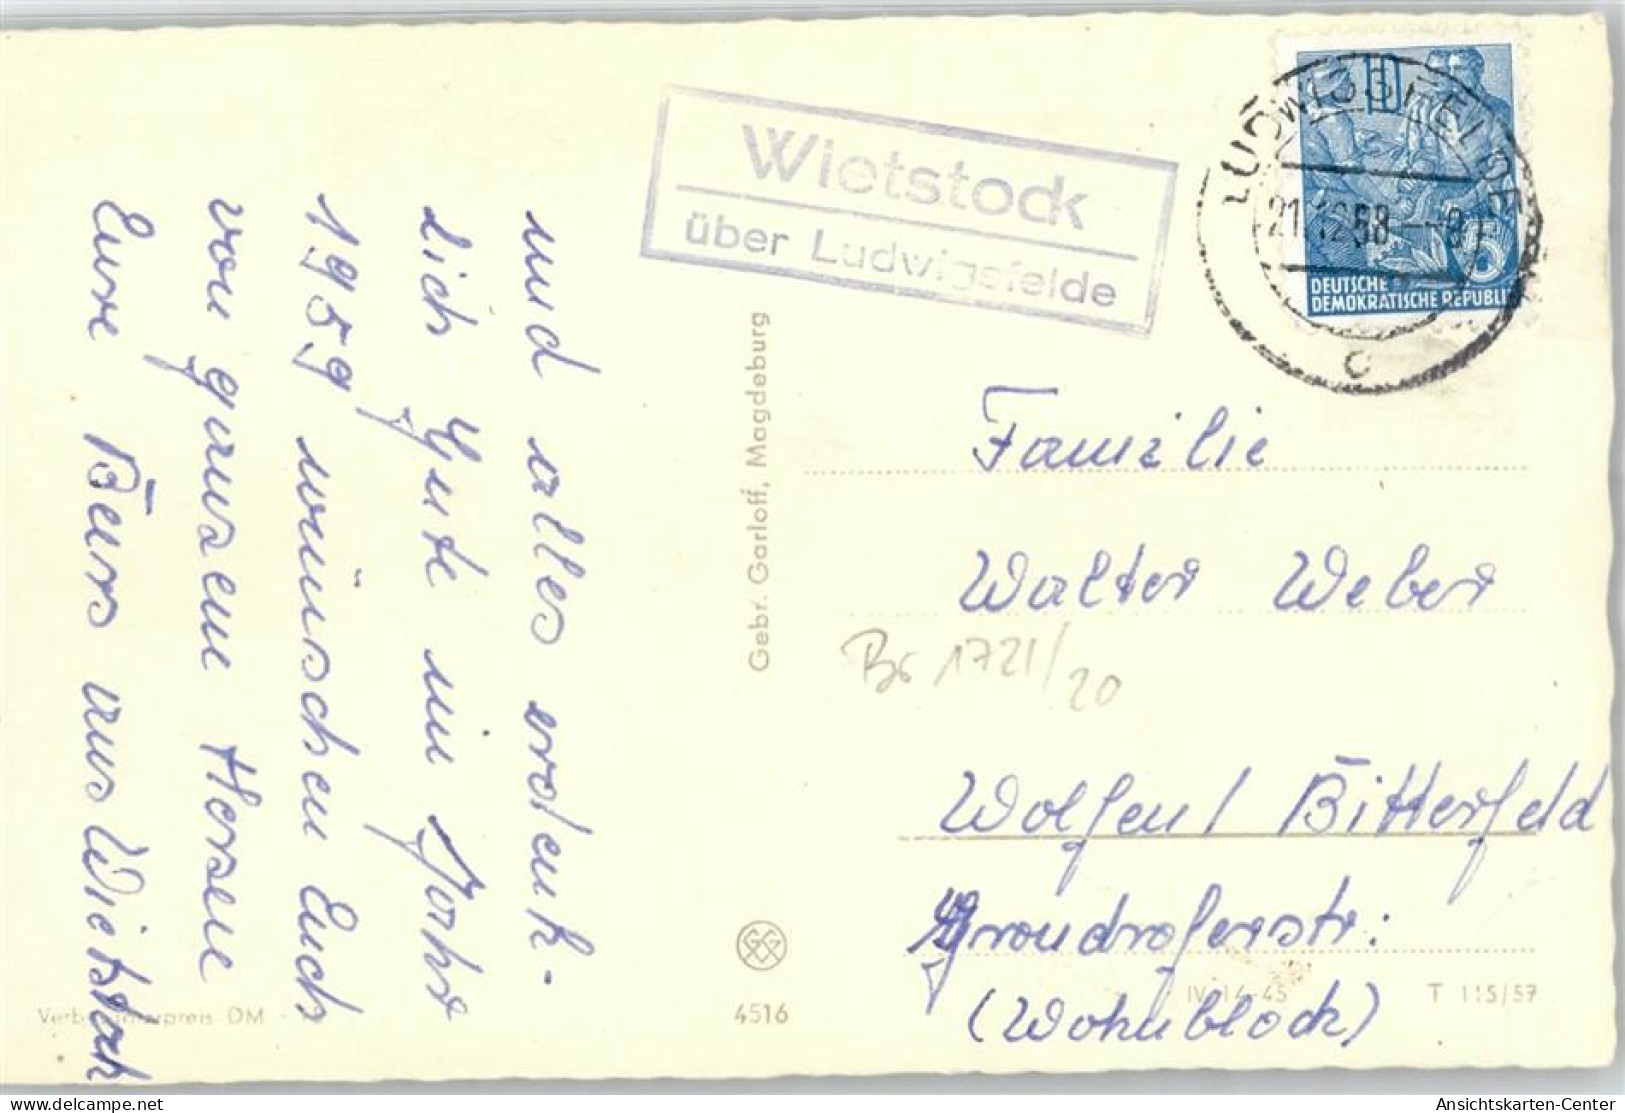 Wietstock
über Ludwigsfelde
LUDWIGSFELDE
21.12.58
c
10
5
DEUTSCHE
DEMOKRATISCHE REPUBLIK
und alles erdenk-
lich Gute im Jahre
1959 wünschen Euch
von ganzem Herzen
Eure Bärs aus Wietstock
Gebr. Garloff, Magdeburg
Familie
Walter Weber
Br 1721/20
Wolfen/Bitterfeld
(Wohnblock)
4516
IV-14-45
T 115/57
DM
Ansichtskarten-Center